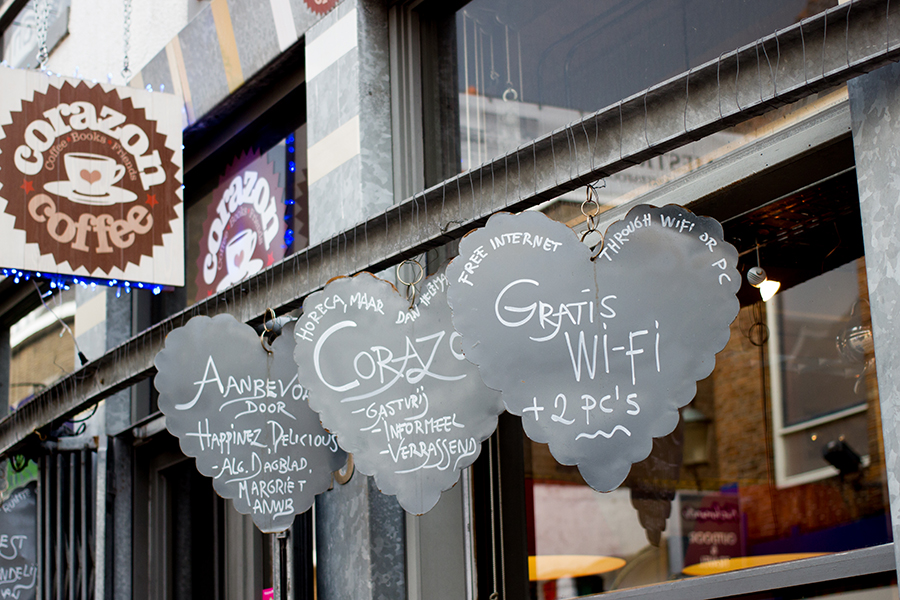 corazon
Coffee • Books • Friends
coffee
corazon
AANBEVO
DOOR
HAPPINEZ, DELICIOUS
-ALG. DAGBLAD,
MARGRIET
ANWB
HORECA, MAAR
DAN
CORAZO
-GASTVRIJ
-INFORMEEL
-VERRASSEND
FREE INTERNET
THROUGH WIFI OR PC
GRATIS
WI-FI
+ 2 PC'S